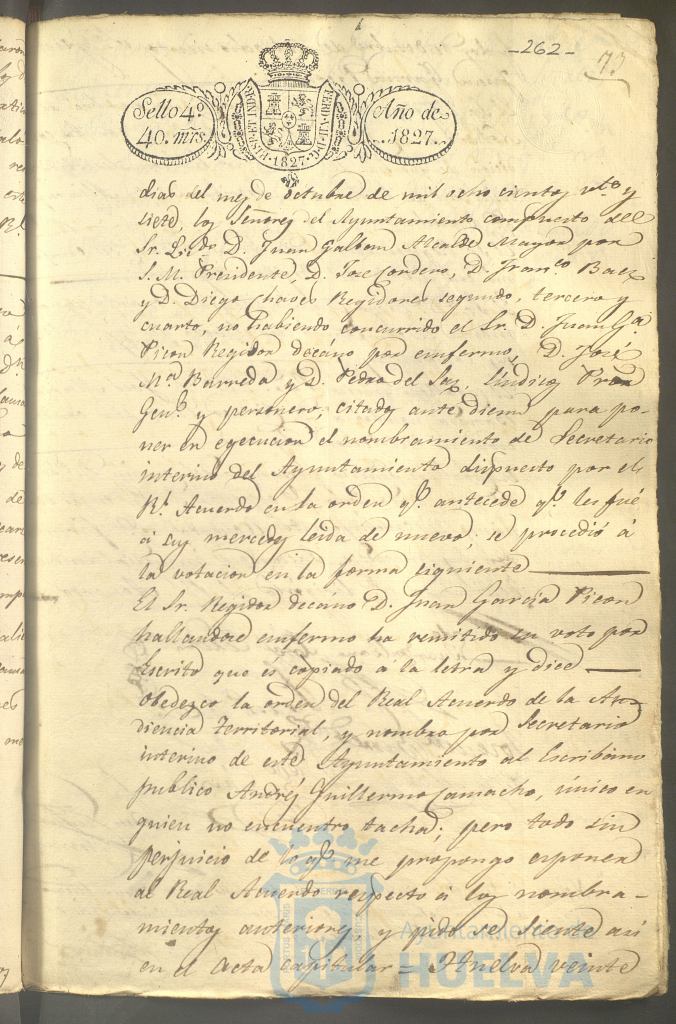 -262-
77
Sello 4º
40. mrs.
Año de
1827.
HISP. ET IND. REX
FERD. VII. D. G.
1827
dias del mes de octubre de mil ocho cientos vte. y
siete, los Señores del Ayuntamiento compuesto del
Sr. Licdo. D. Juan Galbem Alcalde Mayor por
S. M. Presidente, D. Jose Cordero, D. Franco. Baez
y D. Diego Chaves Regidores segundo, tercero y
cuarto, no habiendo concurrido el Sr. D. Juan Ga.
Picon Regidor decano por emfermo, D. José
Ma. Barreda y D. Pedro del Saz, Sindicos Pror.
Genl. y personero, citados ante diem para po-
ner en egecucion el nombramiento de Secretario
interino del Ayuntamiento dispuesto por el
Rl. Acuerdo en la orden qe. antecede qe. les fué
á sus mercedes leida de nuevo; se procedió á
la votacion en la forma siguiente
El Sr. Regidor decano D. Juan Garcia Picon
hallandose emfermo ha remitido su voto por
escrito que es copiado á la letra y dice
Obedezco la orden del Real Acuerdo de la Au-
diencia Territorial, y nombro por Secretario
interino de este Ayuntamiento al Escribano
publico Andres Guillermo Camacho, único en
quien no encuentro tacha; pero todo sin
perjuicio de lo qe. me propongo esponer
al Real Acuerdo respecto á los nombra-
mientos anteriores, y pido se siente asi
en el acta capitular = Huelva veinte
Ayuntamiento de
HUELVA